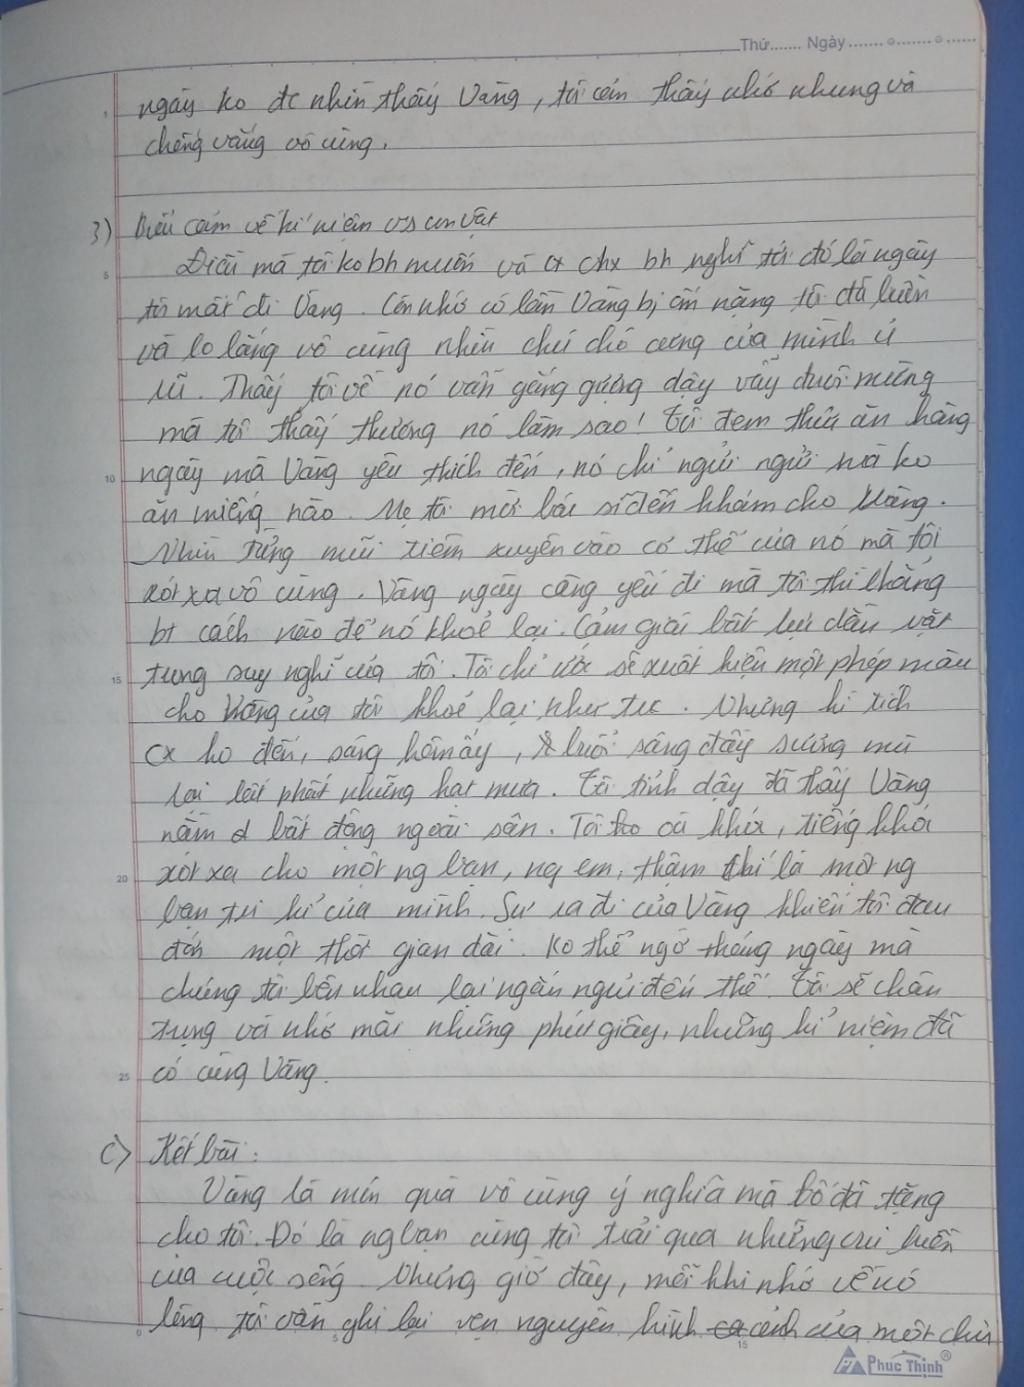 Thứ....... Ngày
ngày ko đc nhìn thấy Vàng, tôi cảm thấy nhớ nhung và
chống vắng vô cùng.
3) Biểu cảm về kỉ niệm vs con vật
Điều mà tôi ko bh muốn và cx chx bh nghĩ tới đó là ngày
tôi mất đi Vàng. Còn nhớ có lần Vàng bị ốm nặng tôi đã buồn
và lo lắng vô cùng nhìn chú chó cưng của mình ủ
rũ. Thấy tôi về nó vẫn gắng gượng dậy vẫy đuôi mừng
mà tôi thấy thương nó làm sao! Tôi đem thức ăn hằng
ngày mà Vàng yêu thích đến, nó chỉ ngửi ngửi mà ko
ăn miếng nào. Mẹ tôi mời bác sĩ đến khám cho Vàng.
Nhìn từng mũi tiêm xuyên vào cơ thể của nó mà tôi
xót xa vô cùng. Vàng ngày càng yếu đi mà tôi thì chẳng
bt cách nào để nó khoẻ lại. Cảm giác bất lực dằn vặt
trong suy nghĩ của tôi. Tôi chỉ ước sẽ xuất hiện một phép màu
cho Vàng của tôi khoẻ lại như trc. Nhưng kì tích
cx ko đến, sáng hôm ấy, buổi sáng đầy sương mù
lại lất phất những hạt mưa. Tôi tỉnh dậy đã thấy Vàng
nằm bất động ngoài sân. Tôi oà khóc, tiếng khóc
xót xa cho một ng bạn, ng em, thậm chí là một ng
bạn tri kỉ của mình. Sự ra đi của Vàng khiến tôi đau
đớn một thời gian dài. Ko thể ngờ tháng ngày mà
chúng tôi bên nhau lại ngắn ngủi đến thế. Tôi sẽ chân
trọng và nhớ mãi những phút giây, những kỉ niệm đã
có cùng Vàng.
c) Kết bài:
Vàng là món quà vô cùng ý nghĩa mà bố đã tặng
cho tôi. Đó là ng bạn cùng tôi trải qua những vui buồn
của cuộc sống. Nhưng giờ đây, mỗi khi nhớ về nó
lòng tôi vẫn ghi lại vẹn nguyên hình cảnh của một chú
Phuc Thinh®